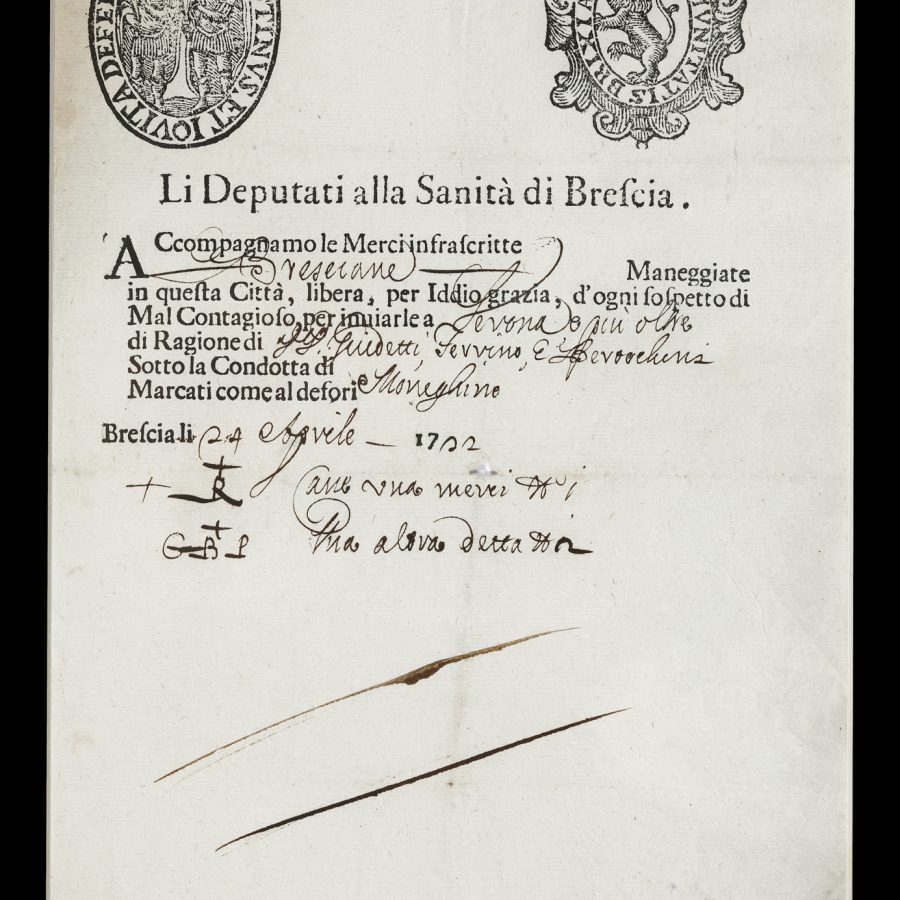 DEFE TINVS ET IOVITA
BRIXIA MVNITATIS
Li Deputati alla Sanità di Breſcia.
ACcompagnamo le Merci infraſcritte
Bresciane Maneggiate
in queſta Città, libera, per Iddio grazia, d'ogni ſoſpetto di
Mal Contagioſo, per inuiarle a Verona e più oltre
di Ragione di Guidetti, Servino, E
Sotto la Condotta di
Marcati come al defori Moneghino
Breſcia li 24 Aprile — 1722
una merci N 1
Una altra detta N 2